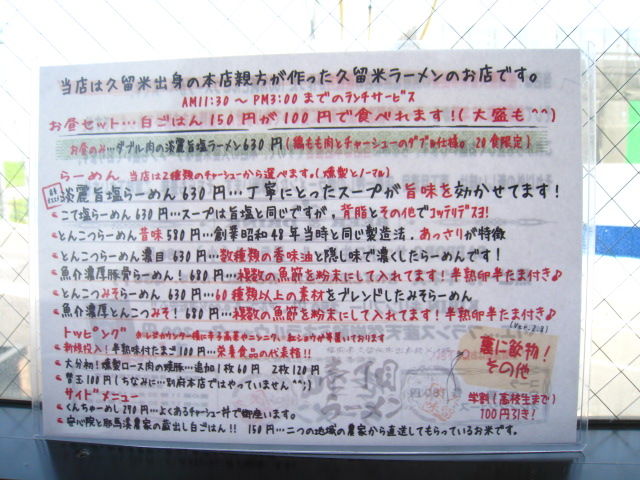 当店は久留米出身の本店親方が作った久留米ラーメンのお店です。
AM11:30 〜 PM3:00 までのランチサービス
お昼セット…白ごはん 150円が100円で食べれます!(大盛も^^)
お昼のみ…ダブル肉の淡麗旨塩ラーメン630円(鶏もも肉とチャーシューのダブル仕様。20食限定)
らーめん 当店は2種類のチャーシューから選べます。(燻製とノーマル)
淡麗旨塩らーめん 630円…丁寧にとったスープが旨味を効かせてます!
こて塩らーめん 630円…スープは旨塩と同じですが、背脂とその他でコッテリデスヨ!
とんこつらーめん昔味 580円…創業昭和48年当時と同じ製造法。あっさりが特徴
とんこつらーめん濃目 630円…数種類の香味油と隠し味で濃くしたらーめんです!
魚介濃厚豚骨らーめん! 680円…複数の魚節を粉末にして入れてます!半熟卵半たま付き♪
とんこつみそらーめん 630円…60種類以上の素材をブレンドしたみそらーめん
魚介濃厚とんこつみそ! 680円…複数の魚節を粉末にして入れてます!半熟卵半たま付き♪
(Ver.2.8)
トッピング
新規投入!半熟味付たまご100円…栄養食品の代表格!!
大分初!燻製ロース肉の燻豚…追加1枚60円 2枚120円
替玉100円(ちなみに…別府本店ではやっていません^^;)
サイドメニュー
くんちゃーめし 290円…よくあるチャーシュー丼で御座います。
安心院と耶馬溪農家の蔵出し白ごはん!! 150円…二つの地域の農家から直送してもらっているお米です。
裏に飲物!
その他
学割(高校生まで)
100円引き!